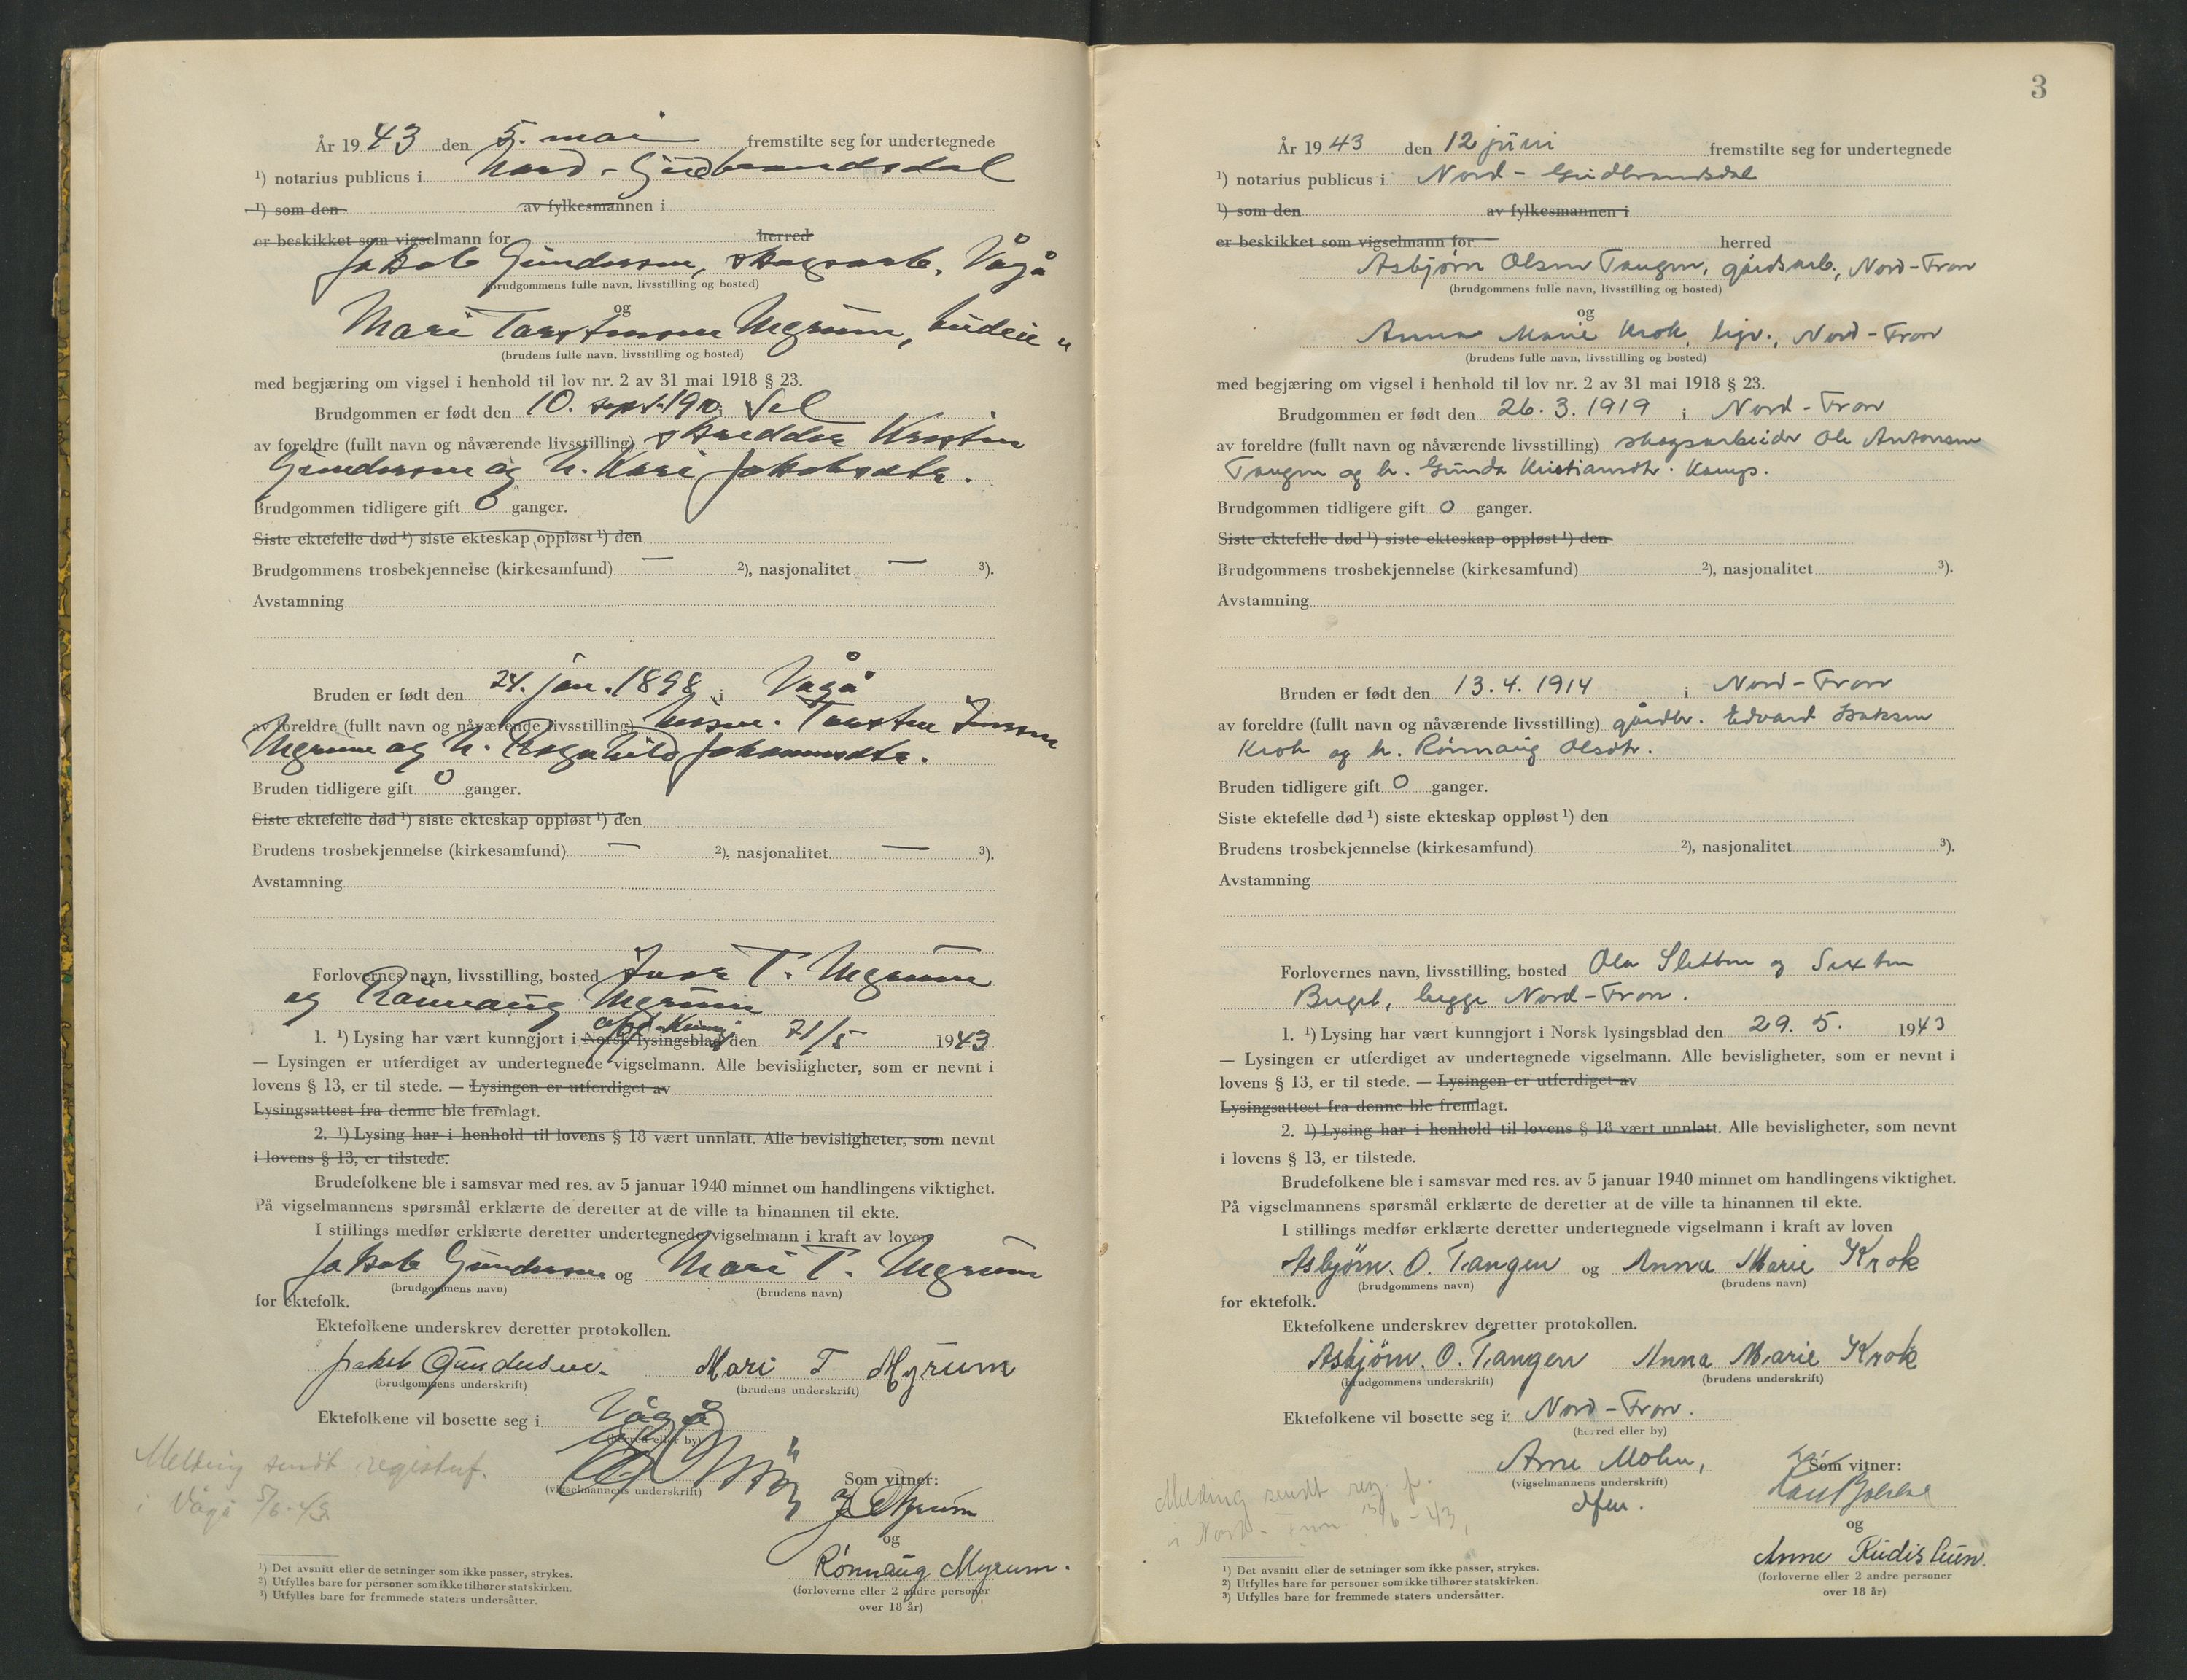 År 1943 den 5. mai fremstilte seg for undertegnede
¹) notarius publicus i Nord-Gudbrandsdal
¹) som den av fylkesmannen i
er beskikket som vigselmann for herred
Jakob Gundersen, skogsarb. Vågå
(brudgommens fulle navn, livsstilling og bosted)
og
Mari Torstensen Myrum, budeie "
(brudens fulle navn, livsstilling og bosted)
med begjæring om vigsel i henhold til lov nr. 2 av 31 mai 1918 § 23.
Brudgommen er født den 10. sept. 1910 Sel
av foreldre (fullt navn og nåværende livsstilling) skredder Kristen
Gundersen og h. Kari Jakobsdtr.
Brudgommen tidligere gift 0 ganger.
Siste ektefelle død ¹) siste ekteskap oppløst ¹) den
Brudgommens trosbekjennelse (kirkesamfund) — ²), nasjonalitet — ³).
Avstamning
Bruden er født den 24. jan. 1898 i Vågå
av foreldre (fullt navn og nåværende livsstilling) Torsten Iversen
Myrum og h. Ragnhild Johannesdtr.
Bruden tidligere gift 0 ganger.
Siste ektefelle død ¹) siste ekteskap oppløst ¹) den
Brudens trosbekjennelse (kirkesamfund) — ²), nasjonalitet — ³).
Avstamning
Forlovernes navn, livsstilling, bosted Ivar T. Myrum
og Rønnaug Myrum
1. ¹) Lysing har vært kunngjort i Norsk lysingsblad den 21/5 1943
— Lysingen er utferdiget av undertegnede vigselmann. Alle bevisligheter, som er nevnt i
lovens § 13, er til stede. — Lysingen er utferdiget av
Lysingsattest fra denne ble fremlagt.
2. ¹) Lysing har i henhold til lovens § 18 vært unnlatt. Alle bevisligheter, som nevnt
i lovens § 13, er tilstede.
Brudefolkene ble i samsvar med res. av 5 januar 1940 minnet om handlingens viktighet.
På vigselmannens spørsmål erklærte de deretter at de ville ta hinannen til ekte.
I stillings medfør erklærte deretter undertegnede vigselmann i kraft av loven
Jakob Gundersen og Mari T. Myrum
(brudgommens navn) (brudens navn)
for ektefolk.
Ektefolkene underskrev deretter protokollen.
Jakob Gundersen. Mari T Myrum
(brudgommens underskrift) (brudens underskrift)
Ektefolkene vil bosette seg i Vågå
(herred eller by)
Melding sendt registerf.
i Vågå 5/6-43
(vigselmannens underskrift)
Som vitner:
Myrum
og
Rønnaug Myrum.
(forloverne eller 2 andre personer
over 18 år)
¹) Det avsnitt eller de setninger som ikke passer, strykes.
²) Utfylles bare for personer som ikke tilhører statskirken.
³) Utfylles bare for fremmede staters undersåtter.
3
År 1943 den 12 juni fremstilte seg for undertegnede
¹) notarius publicus i Nord-Gudbrandsdal
¹) som den av fylkesmannen i
er beskikket som vigselmann for herred
Asbjørn Olsen Tangen, gårdsarb., Nord-Fron
(brudgommens fulle navn, livsstilling og bosted)
og
Anna Marie Krok, hjv., Nord-Fron
(brudens fulle navn, livsstilling og bosted)
med begjæring om vigsel i henhold til lov nr. 2 av 31 mai 1918 § 23.
Brudgommen er født den 26.3.1919 i Nord-Fron
av foreldre (fullt navn og nåværende livsstilling) skogsarbeider Ole Antonsen
Tangen og h. Gunda Kristiansdtr. Kamp.
Brudgommen tidligere gift 0 ganger.
Siste ektefelle død ¹) siste ekteskap oppløst ¹) den
Brudgommens trosbekjennelse (kirkesamfund) ²), nasjonalitet ³).
Avstamning
Bruden er født den 13.4.1914 i Nord-Fron
av foreldre (fullt navn og nåværende livsstilling) gårdbr. Edvard Isaksen
Krok og h. Rønnaug Olsdtr.
Bruden tidligere gift 0 ganger.
Siste ektefelle død ¹) siste ekteskap oppløst ¹) den
Brudens trosbekjennelse (kirkesamfund) ²), nasjonalitet ³).
Avstamning
Forlovernes navn, livsstilling, bosted Ola Sletten og Sixten
begge Nord-Fron.
1. ¹) Lysing har vært kunngjort i Norsk lysingsblad den 29. 5. 1943
— Lysingen er utferdiget av undertegnede vigselmann. Alle bevisligheter, som er nevnt i
lovens § 13, er til stede. — Lysingen er utferdiget av
Lysingsattest fra denne ble fremlagt.
2. ¹) Lysing har i henhold til lovens § 18 vært unnlatt. Alle bevisligheter, som nevnt
i lovens § 13, er tilstede.
Brudefolkene ble i samsvar med res. av 5 januar 1940 minnet om handlingens viktighet.
På vigselmannens spørsmål erklærte de deretter at de ville ta hinannen til ekte.
I stillings medfør erklærte deretter undertegnede vigselmann i kraft av loven
Asbjørn. O. Tangen og Anna Marie Krok
(brudgommens navn) (brudens navn)
for ektefolk.
Ektefolkene underskrev deretter protokollen.
Asbjørn. O. Tangen Anna Marie Krok
(brudgommens underskrift) (brudens underskrift)
Ektefolkene vil bosette seg i Nord-Fron.
(herred eller by)
Melding sendt reg. f.
i Nord-Fron 13/6-43,
Arne Molen,
(vigselmannens underskrift)
dfm.
Som vitner:
og
Anne Rudistuen.
(forloverne eller 2 andre personer
over 18 år)
¹) Det avsnitt eller de setninger som ikke passer, strykes.
²) Utfylles bare for personer som ikke tilhører statskirken.
³) Utfylles bare for fremmede staters undersåtter.